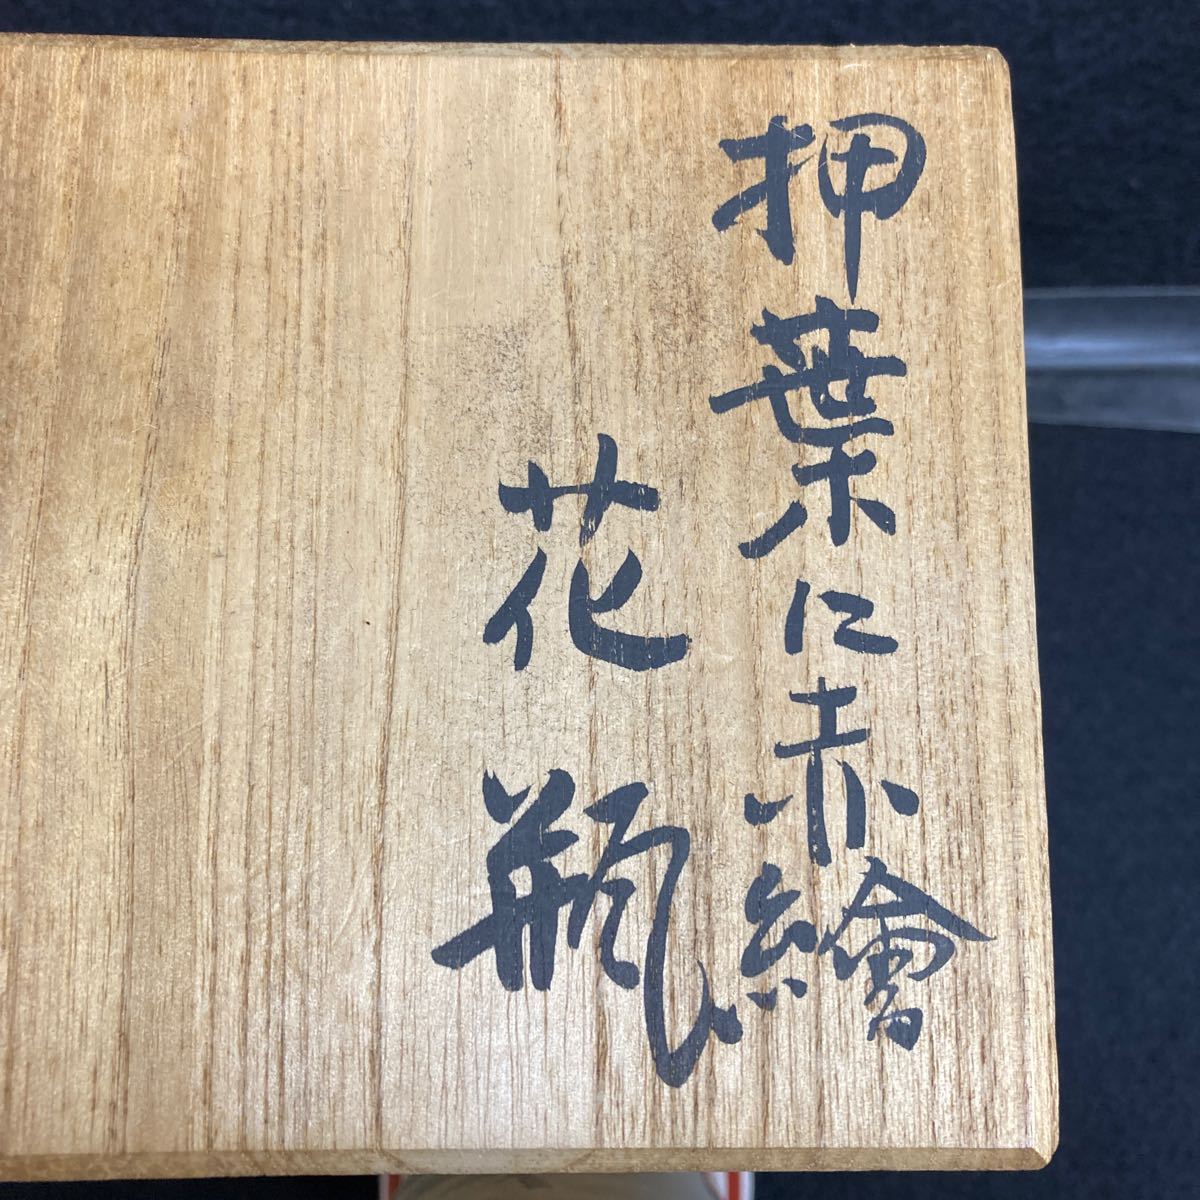 押葉に赤繪
花瓶